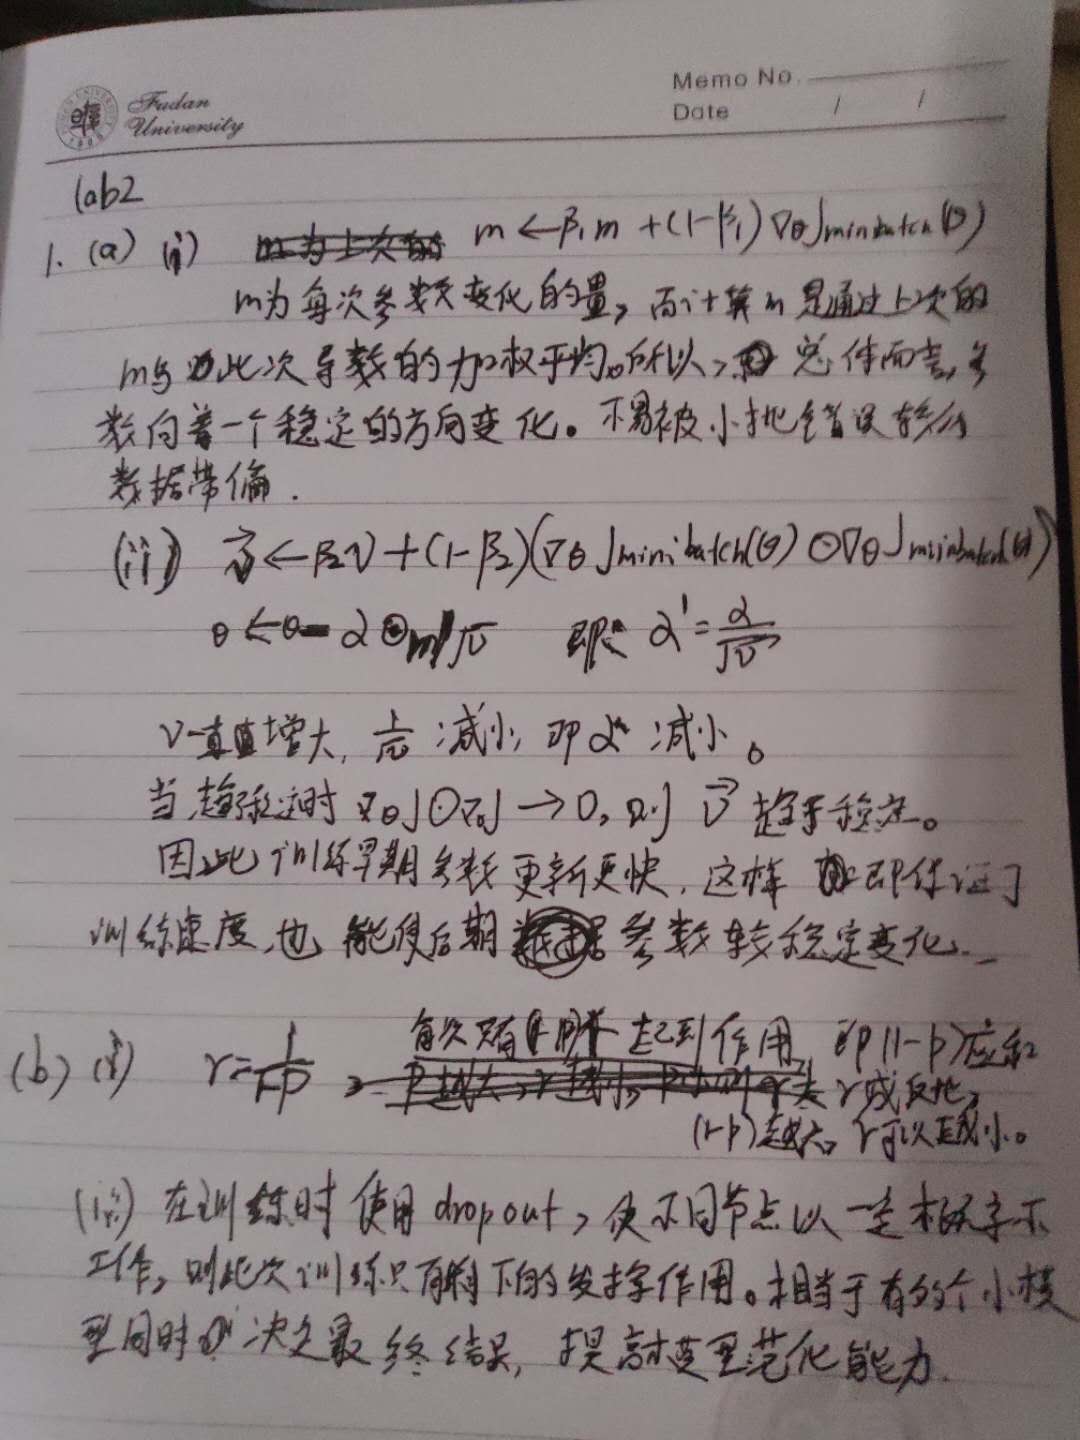 Fudan
University
Memo No.
Date / /
lab2
1. (a) (i) m ← β₁m + (1-β₁)∇θJminibatch(θ)
m为每次参数变化的量，而计算m是通过上次的
m与此次导数的加权平均。所以，总体而言，参
数向着一个稳定的方向变化。不易被小批错误较大
数据带偏.
(ii) v ← β₂v + (1-β₂)(∇θJminibatch(θ) ⊙ ∇θJminibatch(θ))
θ ← θ - α⊙m/√v 即: α' = α/√v
v一直增大, 1/√v 减小, 即α' 减小。
当趋于稳定时 ∇θJ⊙∇θJ → 0, 则 v 趋于稳定。
因此训练早期参数更新更快, 这样即保证了
训练速度, 也能使后期参数较稳定变化.
每次只有 起到作用, 即(1-p)应和
(b) (i) r = 1/1-p r成反比,
(1-p)越大, r可以越小。
(ii) 在训练时使用dropout, 使不同节点以一定概率不
工作, 则此次训练只有剩下的发挥作用。相当于有多个小模
型同时决定最终结果, 提高模型范化能力.